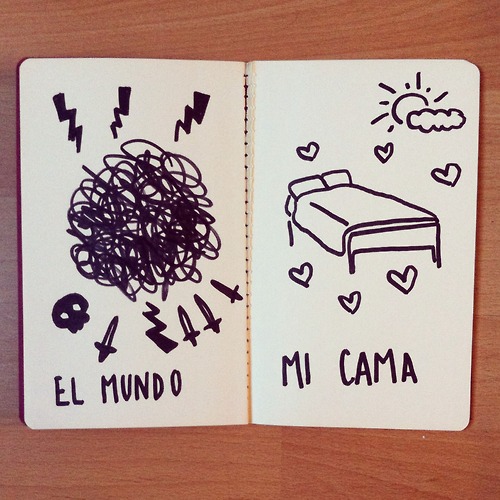 EL MUNDO
MI CAMA